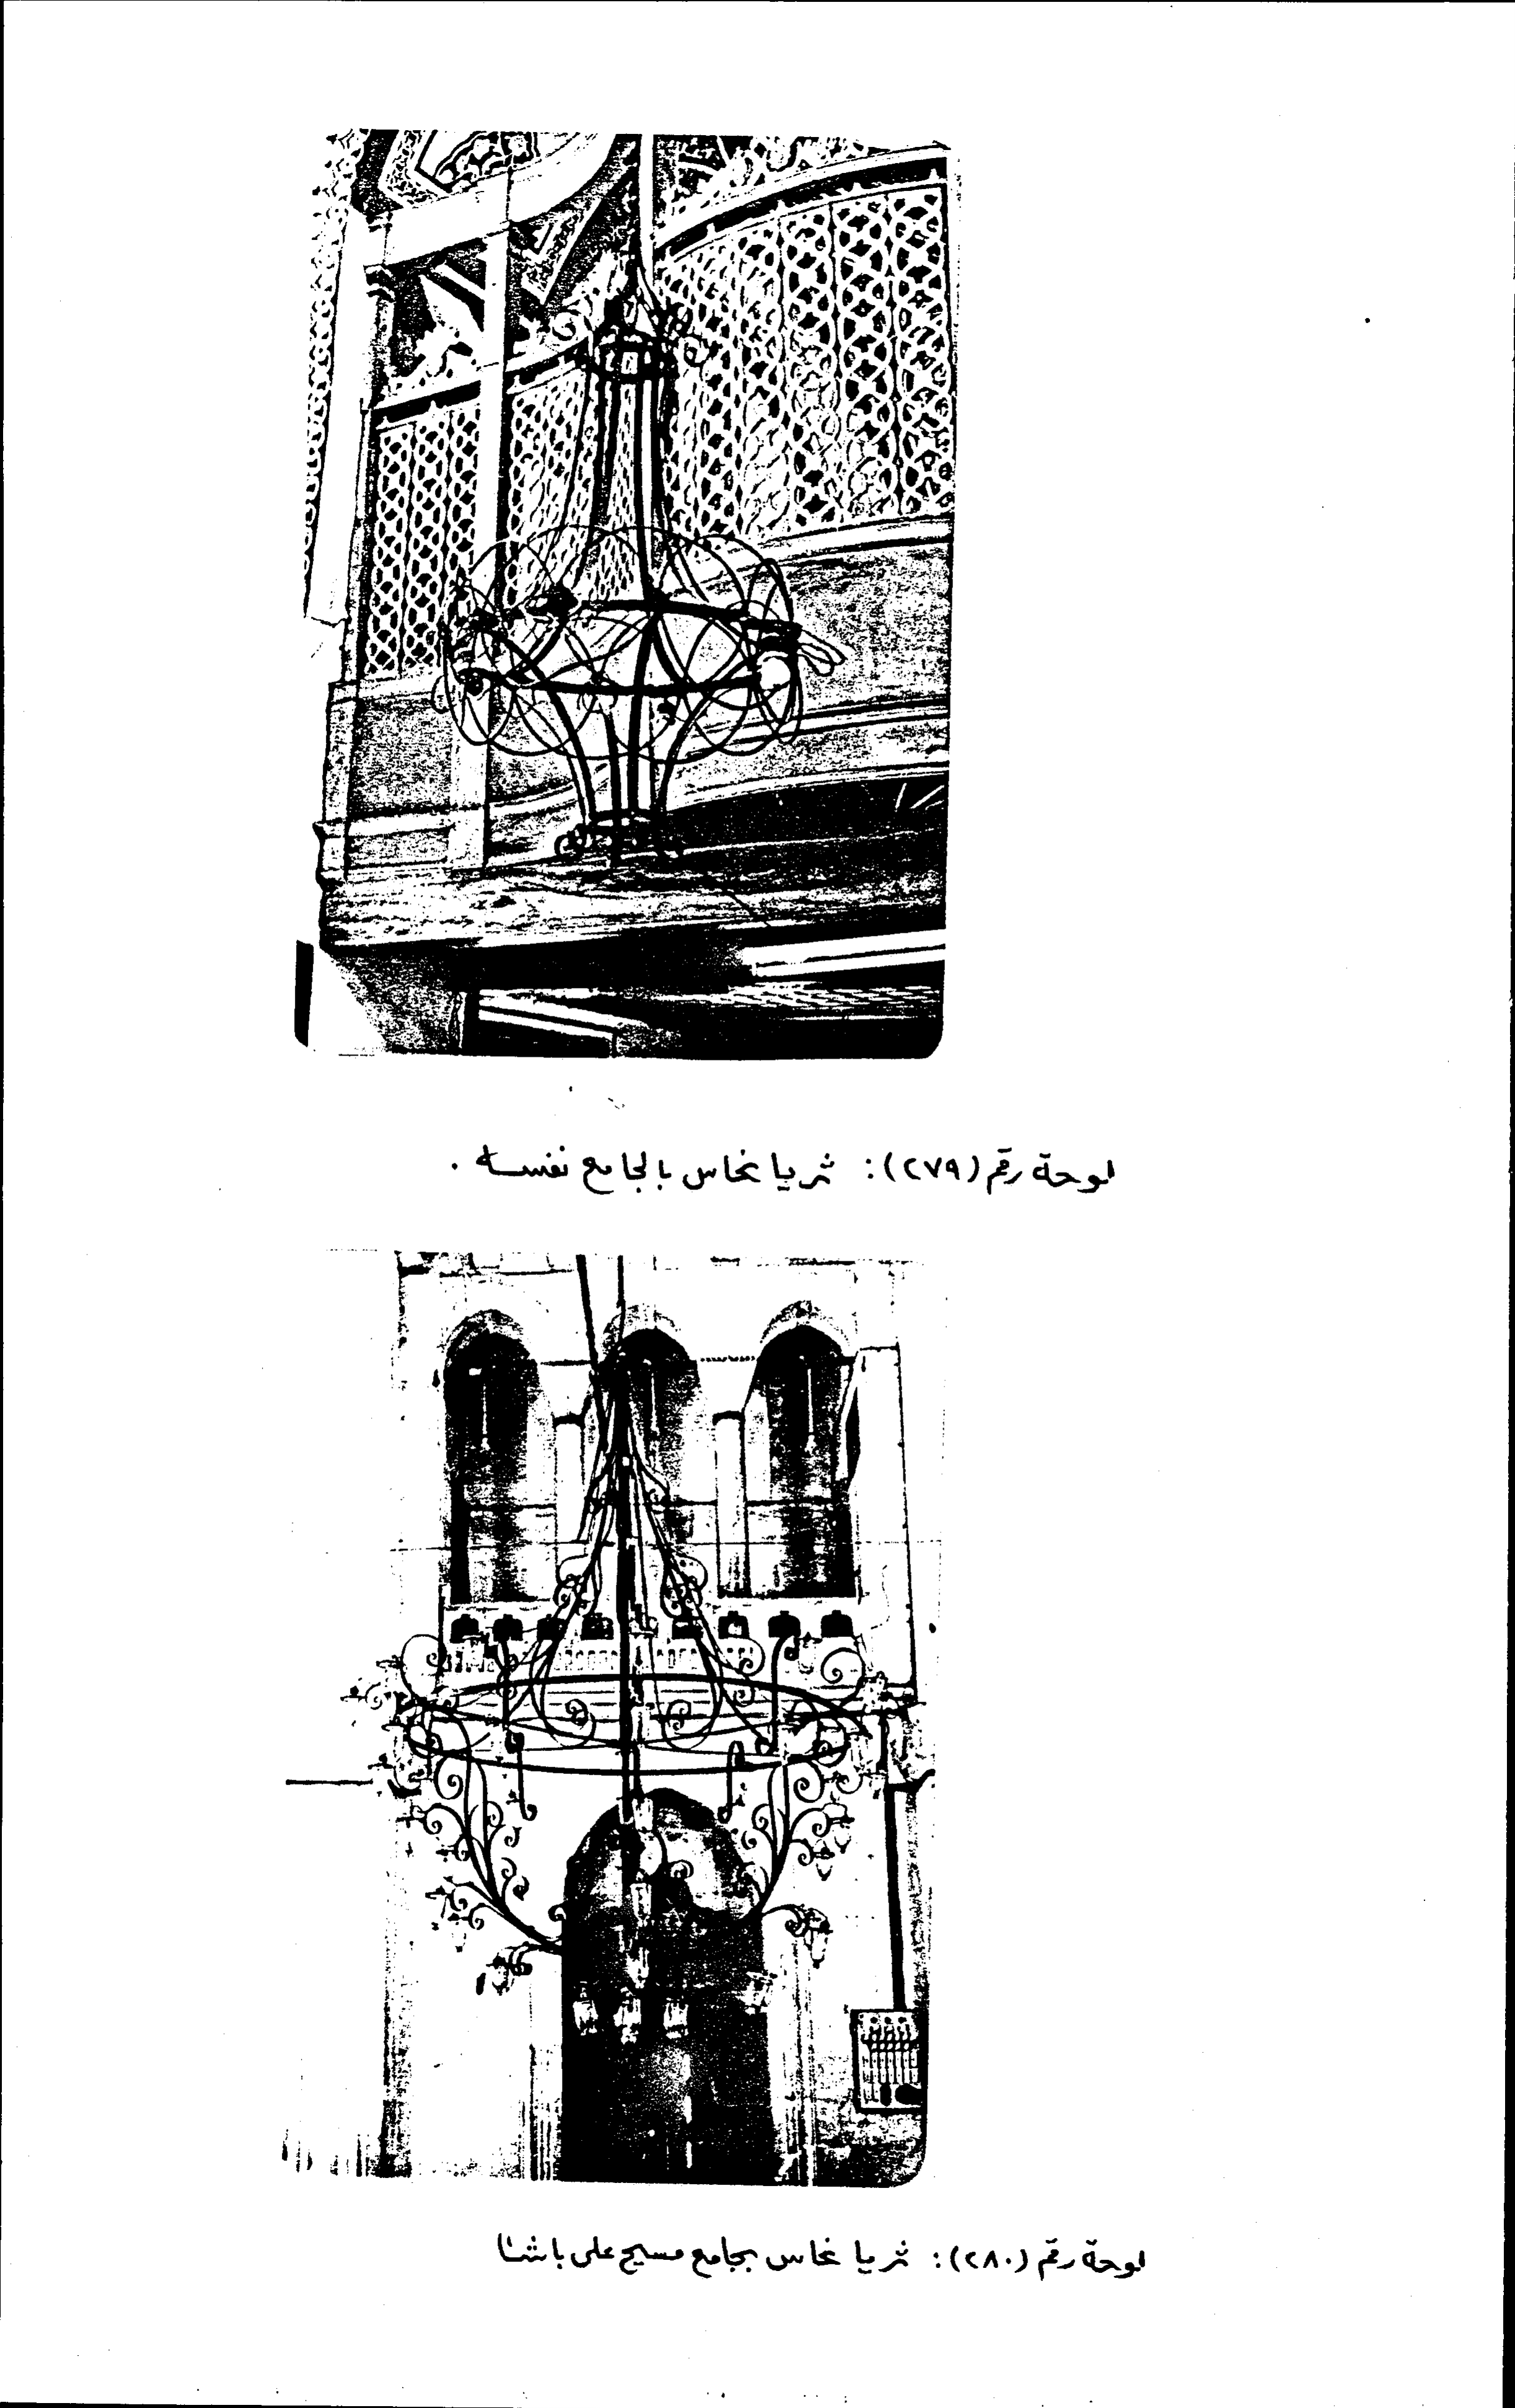 لوحة رقم (٢٧٩): ثريا نحاس بالجامع نفسه .
لوحة رقم (٢٨٠): ثريا نحاس بجامع مسيح على باشا